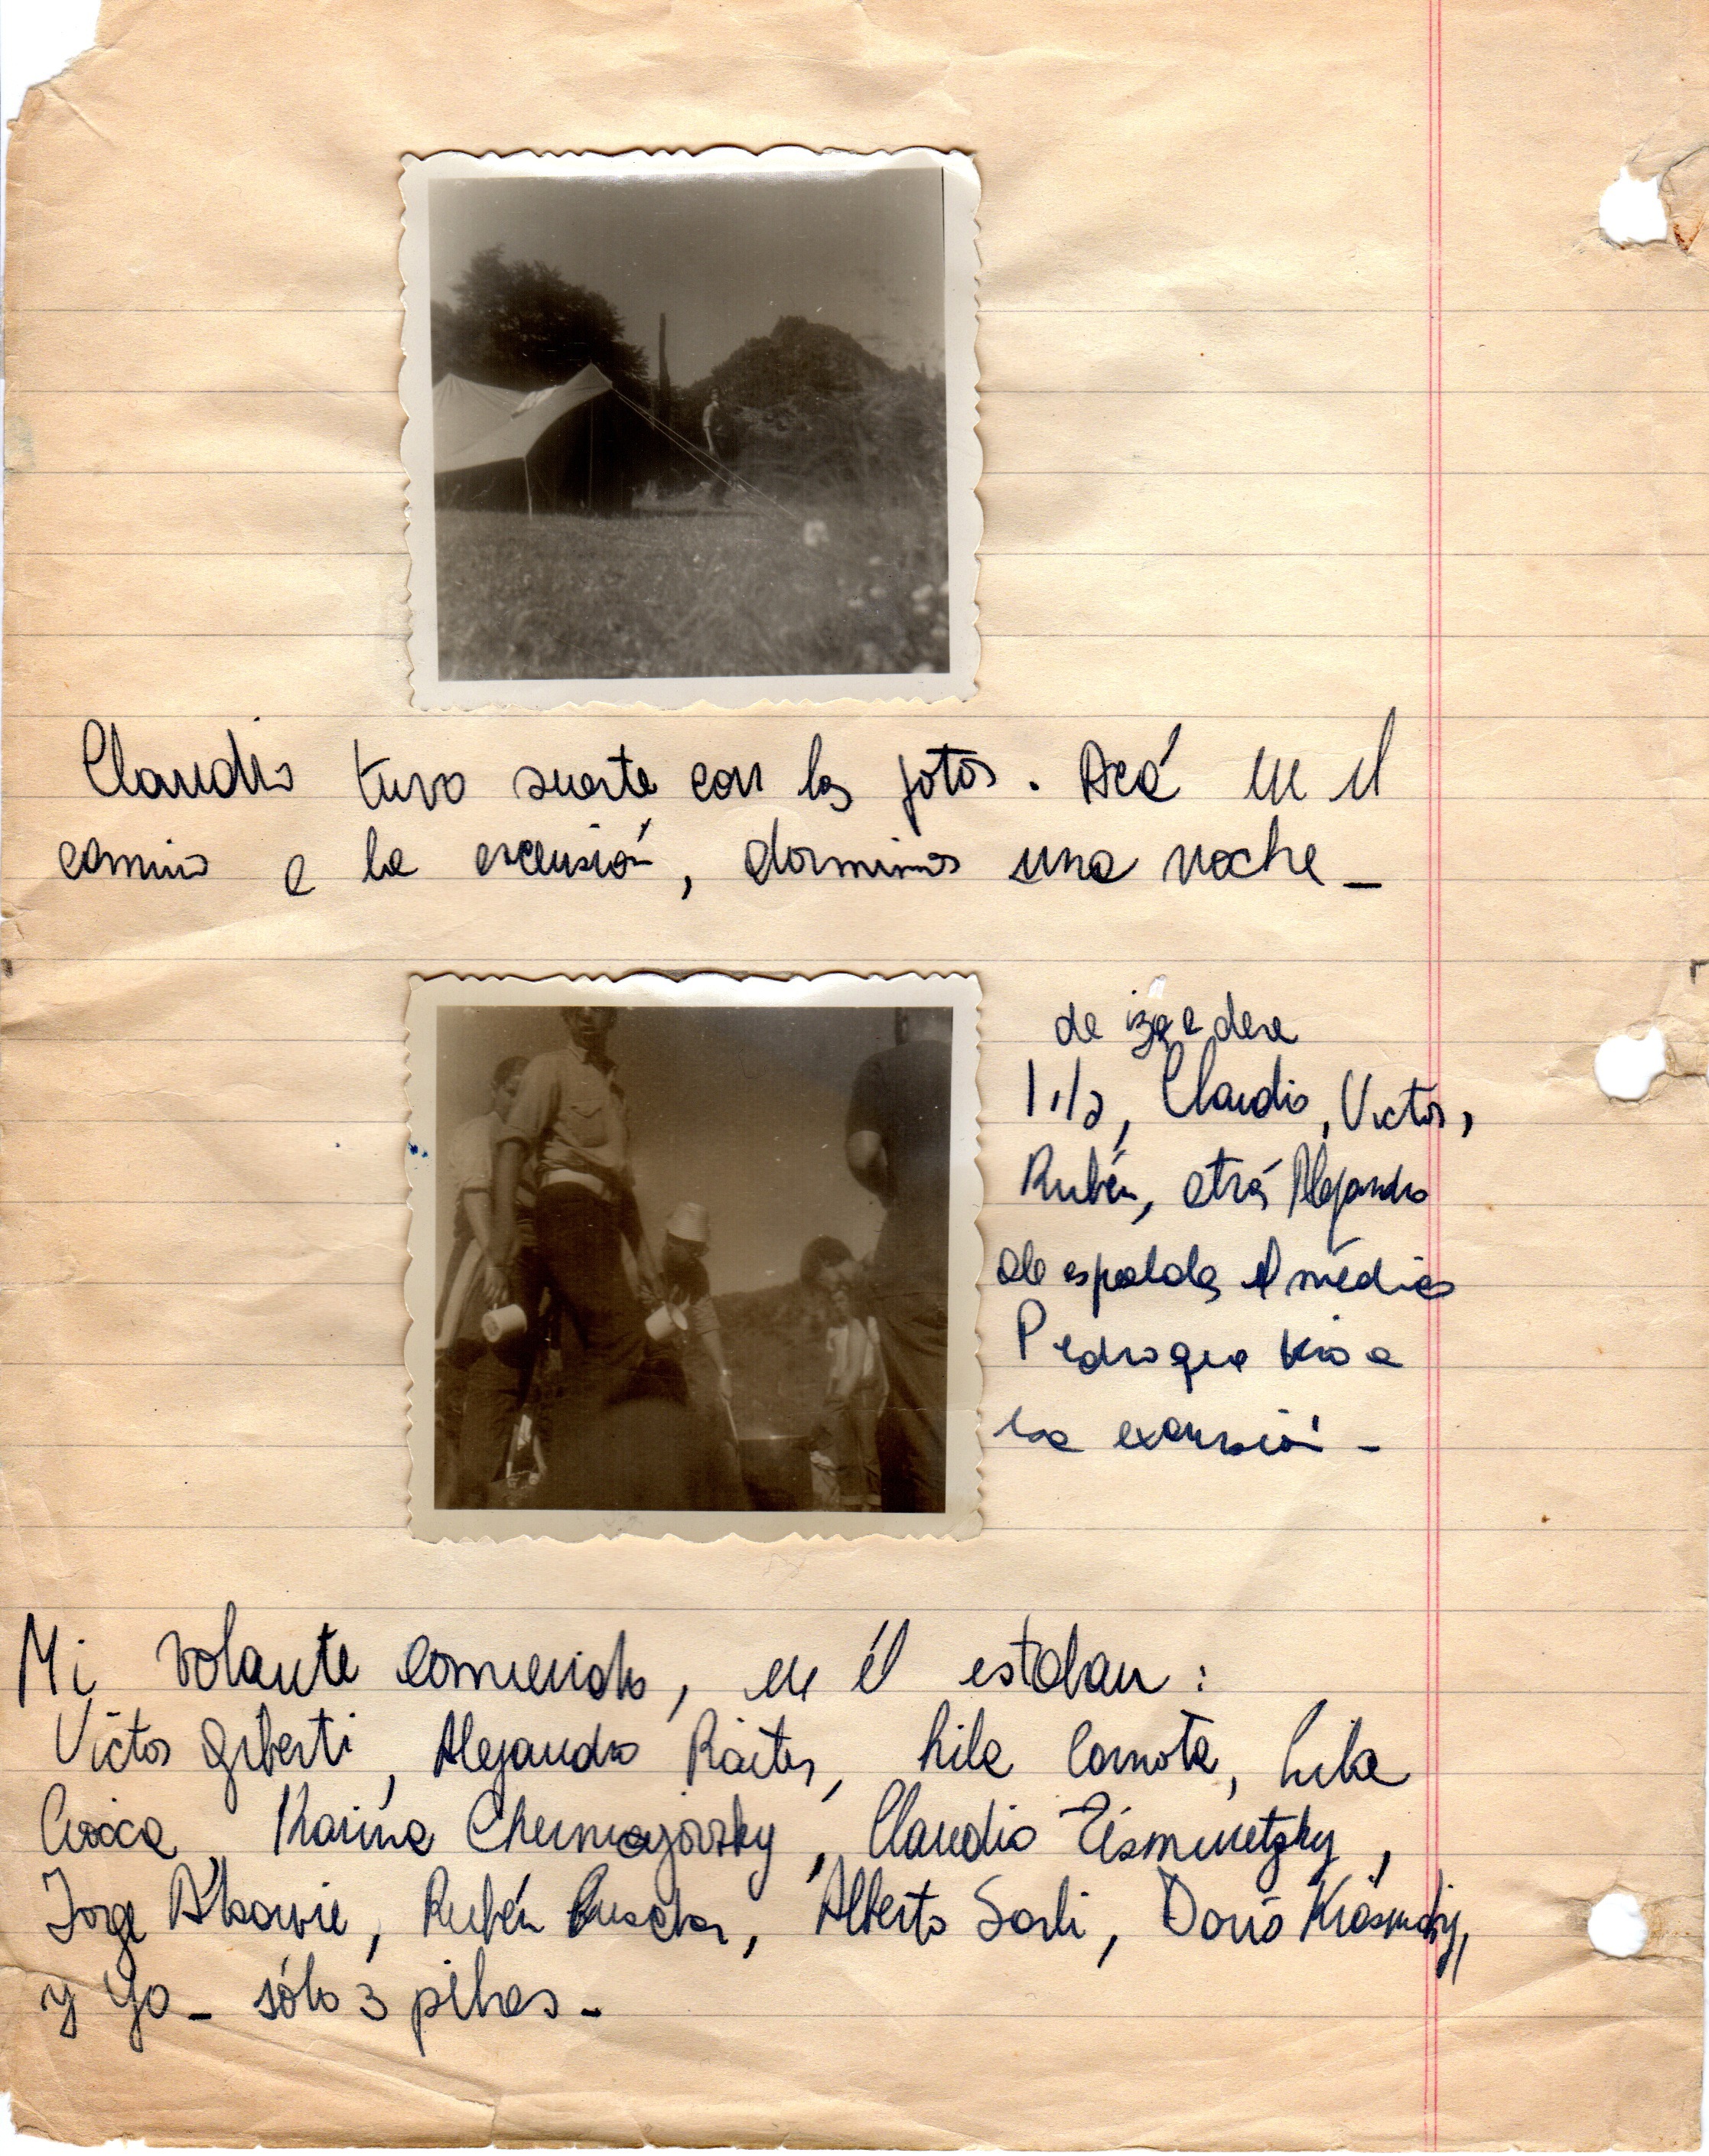 Claudio tuvo suerte con las fotos. Acá en el
camino a la excursión, dormimos una noche_
de izq a derе
Lila, Claudio, Victor,
Rubén, atrás Alejandro
de espaldas el médico
Pedro que vino a
la excursión -
Mi volante comiendo, en él estaban:
Victor Giberti, Alejandro Raiter, Lila Cornota, Lila
Karina Claudio Tismenetzky,
Jorge Rubén Alberto Sarli, Doris
y yo_ sólo 3 pibas_